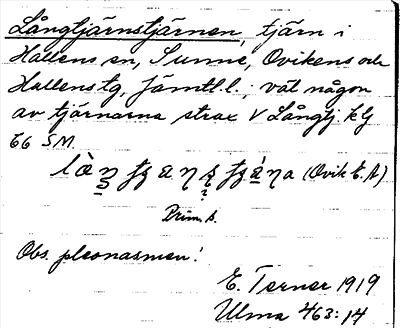 Långtjärnstjärnen, tjärn i
Hallens sn, Sunne, Ovikens och
Hallens tg, Jämtl. l.; väl någon
av tjärnarna strax V Långtj. klg
66 S.M.
(Ovik E. A)
Prim. b.
Obs. pleonasmen!
E. Terner 1919
Ulma 463:14